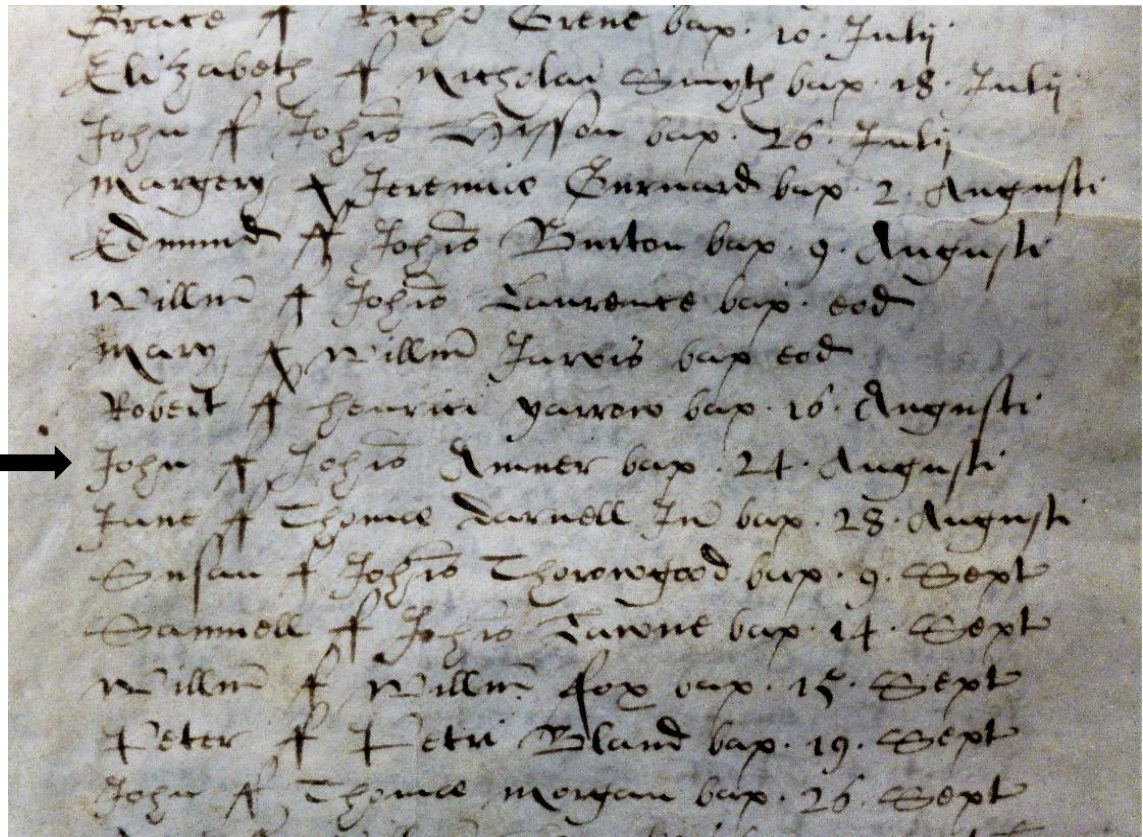 Grace ff Richi Grene bap. 10. Julij
Elizabeth ff Nicholai Smyth bap. 18. Julij
John ff Johis bap. 26. Julij
Margery ff Jeremie Gurnard bap. 2. Augusti
Edmund ff Johis Burton bap. 9. Augusti
Willm ff Johis Laurence bap. eod
Mary ff Willm Jarvis bap eod
Robert ff henrici yarrow bap. 16. Augusti
John ff Johis Amner bap. 24. Augusti
Jane ff Thome Darnell Jn bap. 28. Augusti
Susan ff Johis Thorowgood bap. 9. Sept
Samuell ff Johis Lawne bap. 14. Sept
Willm ff Willm fox bap. 15. Sept
Peter ff Petri Bland bap. 19. Sept
John ff Thome Morgan bap. 26. Sept